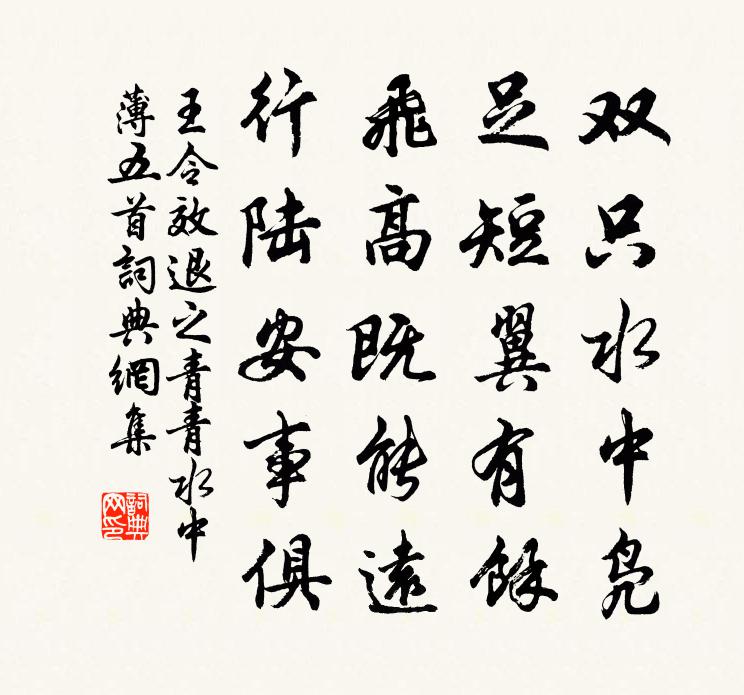 双只水中凫
足短翼有餘
飛高既能遠
行陆安事俱
王令效退之青青水中
薄五首詞典網集
詞典网印